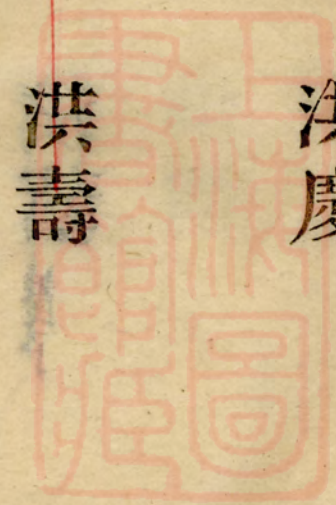 洪慶
洪壽
上海圖
書館藏